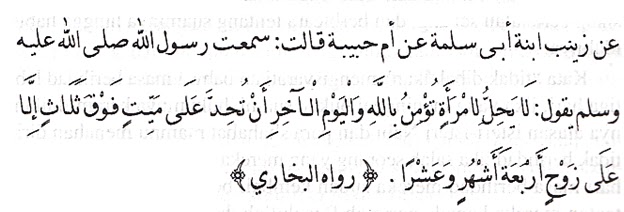 عن زينب ابنة أبى سلمة عن أم حبيبة قالت: سمعت رسول الله صلى الله عليه
وسلم يقول: لَا يَحِلُّ لامْرَأَةٍ تُؤْمِنُ بِاللَّهِ وَالْيَوْمِ الْآخِرِ أَنْ تُحِدَّ عَلَى مَيِّتٍ فَوْقَ ثَلَاثٍ إِلَّا
عَلَى زَوْجٍ أَرْبَعَةَ أَشْهُرٍ وَعَشْرًا . ﴿ رواه البخاري ﴾